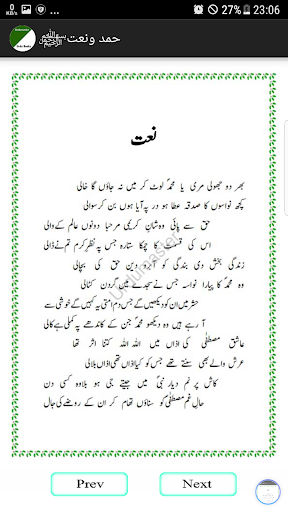 0 K/s 27% 23:06
حمد ونعت ﷽
نعت
بھر دو جھولی مری یا محمدؐ لوٹ کر میں نہ جاؤں گا خالی
کچھ نواسوں کا صدقہ عطا ہو در پہ آیا ہوں بن کر سوالی
حق سے پائی وہ شانِ کریمی مرحبا دونوں عالم کے والی
اس کی قسمت کا چمکا ستارہ جس پہ نظرِ کرم تم نے ڈالی
زندگی بخش دی بندگی کو آبرو دین حق کی بچالی
وہ محمدؐ کا پیارا نواسہ جس نے سجدے میں گردن کٹالی
حشر میں ان کو دیکھیں گے جس دم امتی یہ کہیں گے خوشی سے
آرہے ہیں وہ دیکھو محمدؐ جن کے کاندھے پہ کملی ہے کالی
عاشق مصطفیٰؐ کی اذاں میں اللہ اللہ کتنا اثر تھا
عرش والے بھی سنتے تھے جس کو کیا اذاں تھی اذاں بلالی
کاش پرنم دیار نبیؐ میں جیتے جی ہو بلاوہ کسی دن
حالِ غم مصطفیٰؐ کو سناؤں تھام کر ان کے روضے کی جالی
Urdumaster
Prev Next